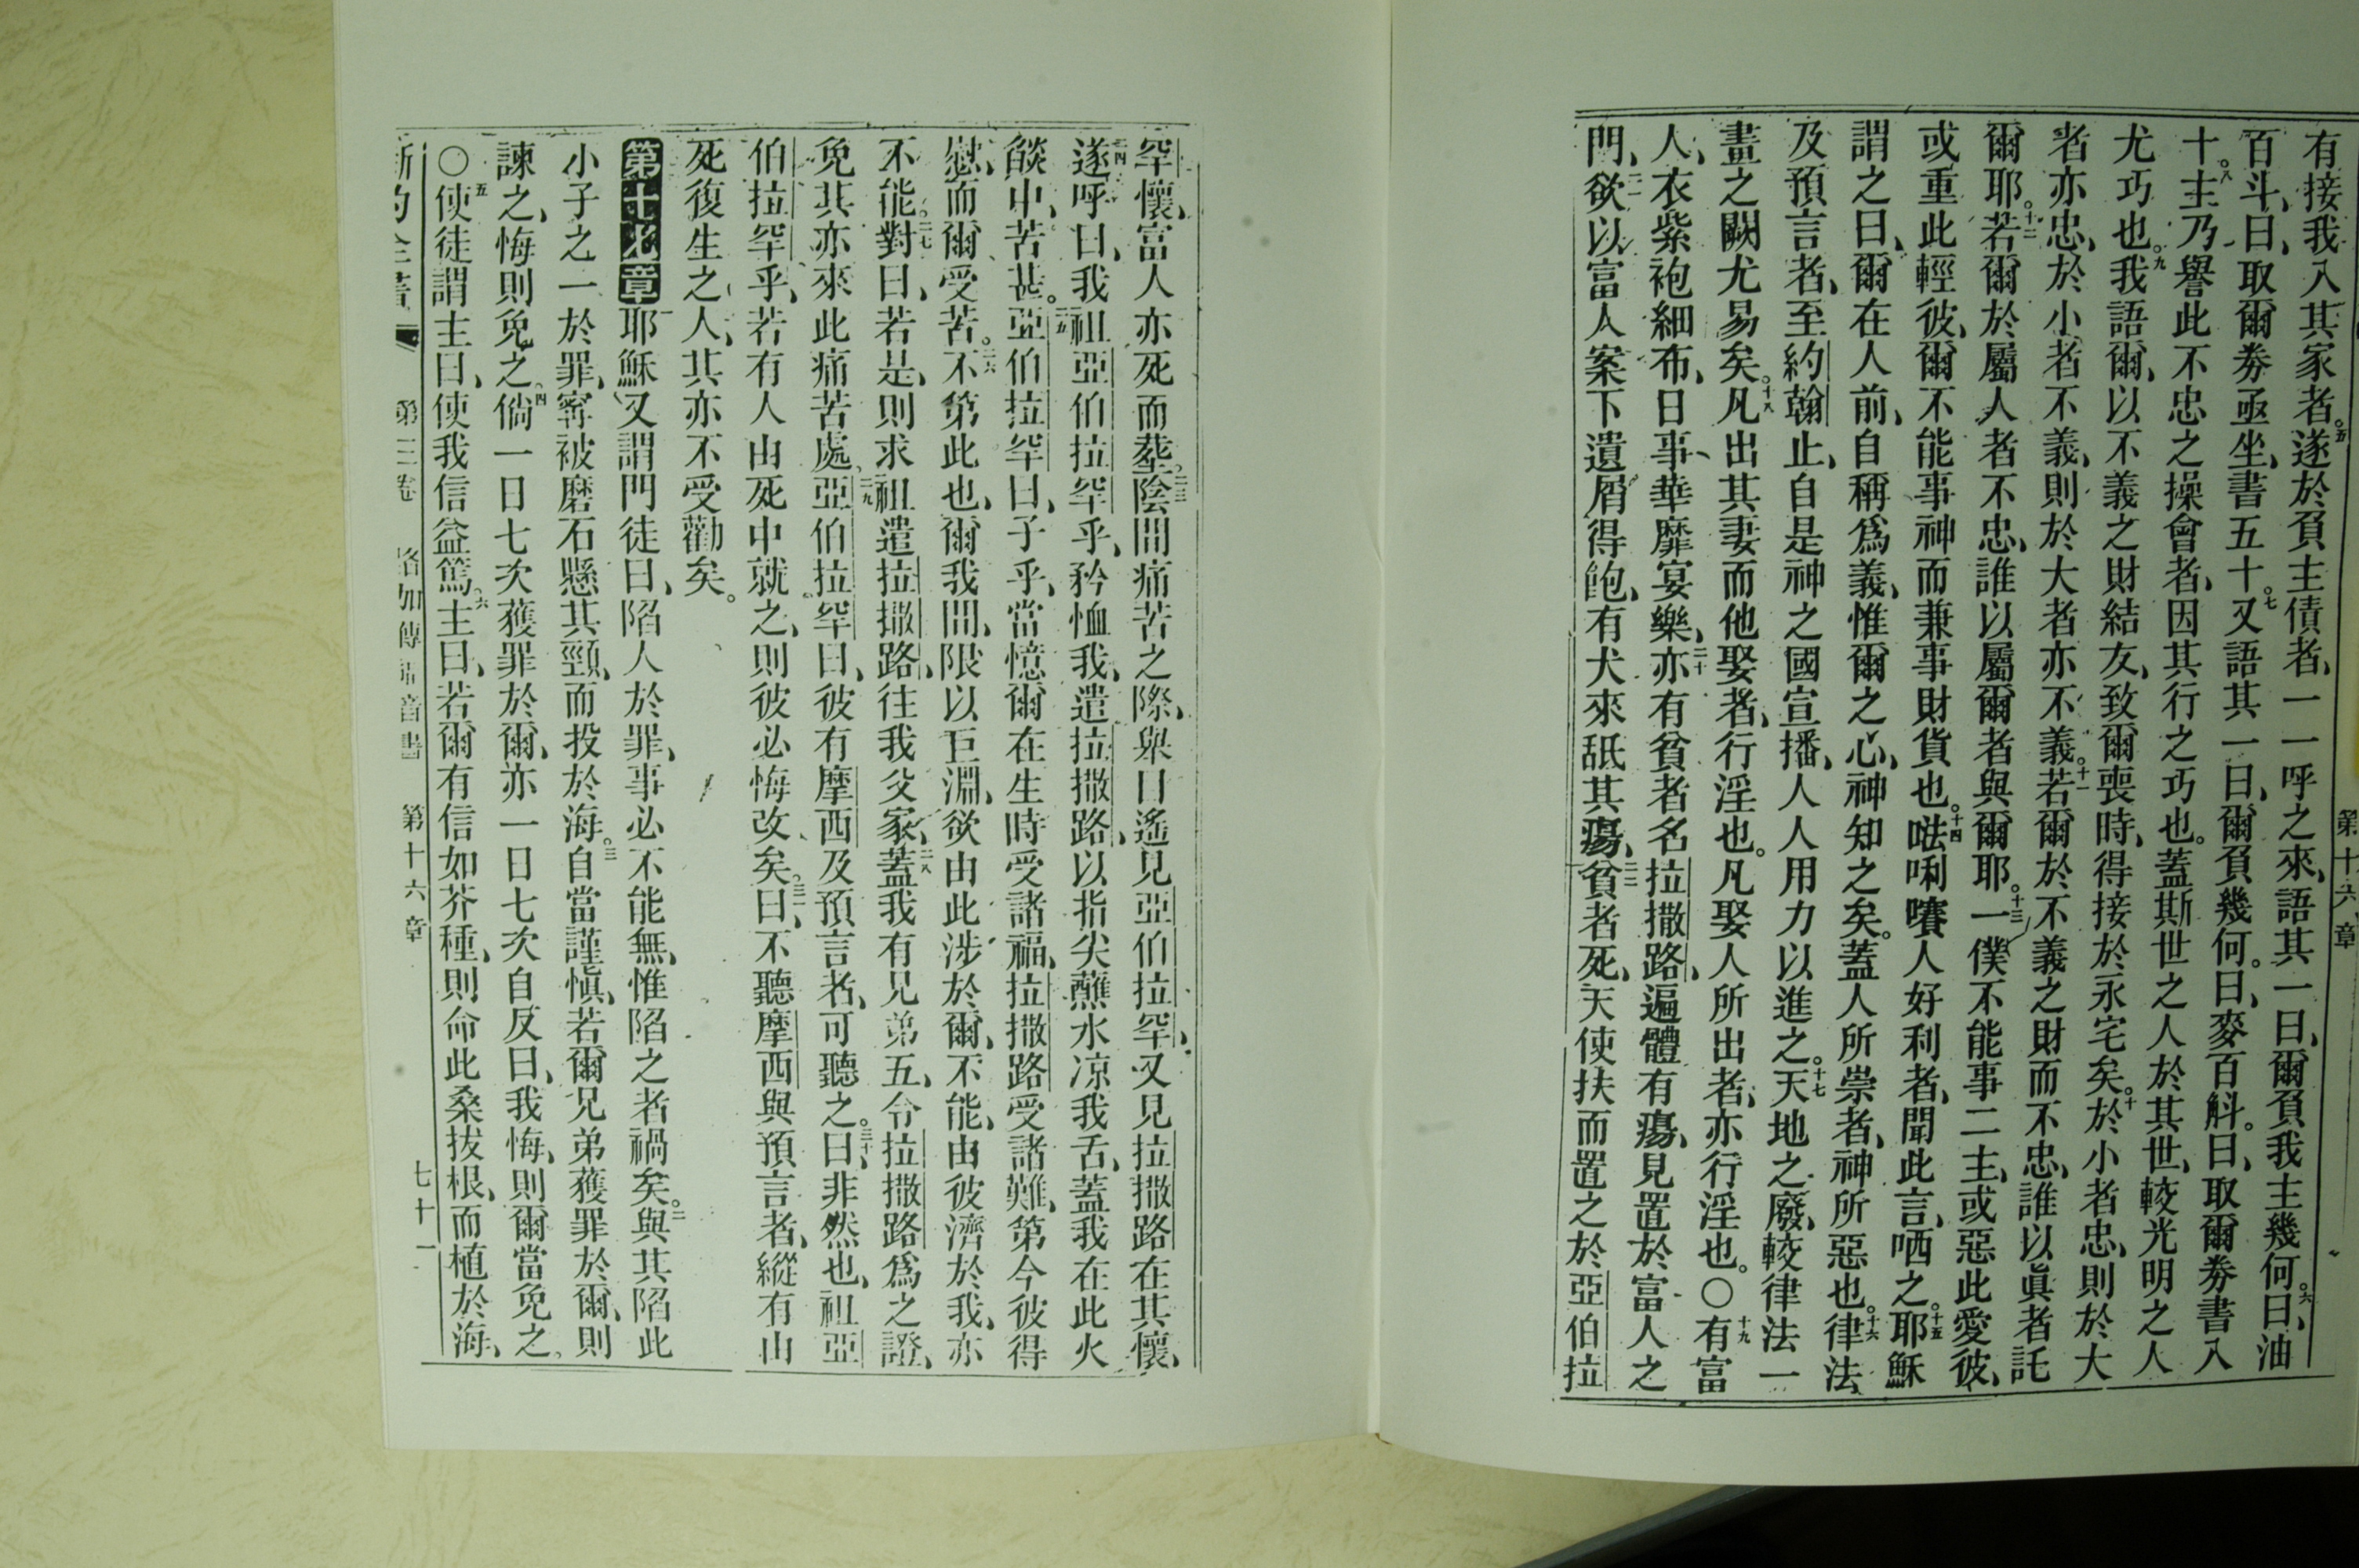 第十六章
有接我入其家者。五遂於負主債者、一一呼之來、語其一曰、爾負我主幾何。六曰、油
百斗、曰、取爾劵亟坐、書五十。七又語其一曰、爾負幾何。曰、麥百斛。曰、取爾劵書八
十。八主乃譽此不忠之操會者、因其行之巧也。蓋斯世之人於其世、較光明之人
尤巧也。九我語爾、以不義之財結友、致爾喪時、得接於永宅矣。十於小者忠、則於大
者亦忠、於小者不義、則於大者亦不義。十一若爾於不義之財而不忠、誰以眞者託
爾耶。十二若爾於屬人者不忠、誰以屬爾者與爾耶。十三一僕不能事二主、或惡此愛彼、
或重此輕彼、爾不能事神而兼事財貨也。十四㗲唎嚽人好利者、聞此言、哂之。十五耶穌
謂之曰、爾在人前、自稱爲義、惟爾之心、神知之矣。蓋人所崇者、神所惡也。十六律法
及預言者、至約翰止、自是神之國宣播、人人用力以進之。十七天地之廢、較律法一
畫之闕尤易矣。十八凡出其妻而他娶者、行淫也。凡娶人所出者、亦行淫也。○十九有富
人、衣紫袍細布、日事華靡宴樂、二十亦有貧者名拉撒路、遍體有瘍、見置於富人之
門、二一欲以富人案下遺屑得飽、有犬來舐其瘍、二二貧者死、天使扶而置之於亞伯拉
罕懷、富人亦死而葬。二三陰間痛苦之際、舉目遙見亞伯拉罕、又見拉撒路在其懷、
二四遂呼曰、我祖亞伯拉罕乎、矜恤我、遣拉撒路、以指尖蘸水凉我舌、蓋我在此火
燄中、苦甚。二五亞伯拉罕曰、子乎、當憶爾在生時受諸福、拉撒路受諸難、第今彼得
慰、而爾受苦。二六不第此也、爾我間、限以巨淵、欲由此涉於爾、不能、由彼濟於我、亦
不能。二七對曰、若是、則求祖遣拉撒路、往我父家、二八蓋我有兄弟五、令拉撒路爲之證、
免其亦來此痛苦處、二九亞伯拉罕曰、彼有摩西及預言者、可聽之。三十曰、非然也、祖亞
伯拉罕乎、若有人由死中就之、則彼必悔改矣。三一曰、不聽摩西與預言者、縱有由
死復生之人、其亦不受勸矣。
第十七章耶穌又謂門徒曰、陷人於罪、事必不能無、惟陷之者禍矣。二與其陷此
小子之一於罪、寧被磨石懸其頸、而投於海。三自當謹愼、若爾兄弟獲罪於爾、則
諫之、悔則免之、四倘一日七次獲罪於爾、亦一日七次自反曰、我悔、則爾當免之。
○五使徒謂主曰、使我信益篤。六主曰、若爾有信如芥種、則命此桑拔根、而植於海、
新約全書　第三卷　路加傳福音書　第十六章　七十一